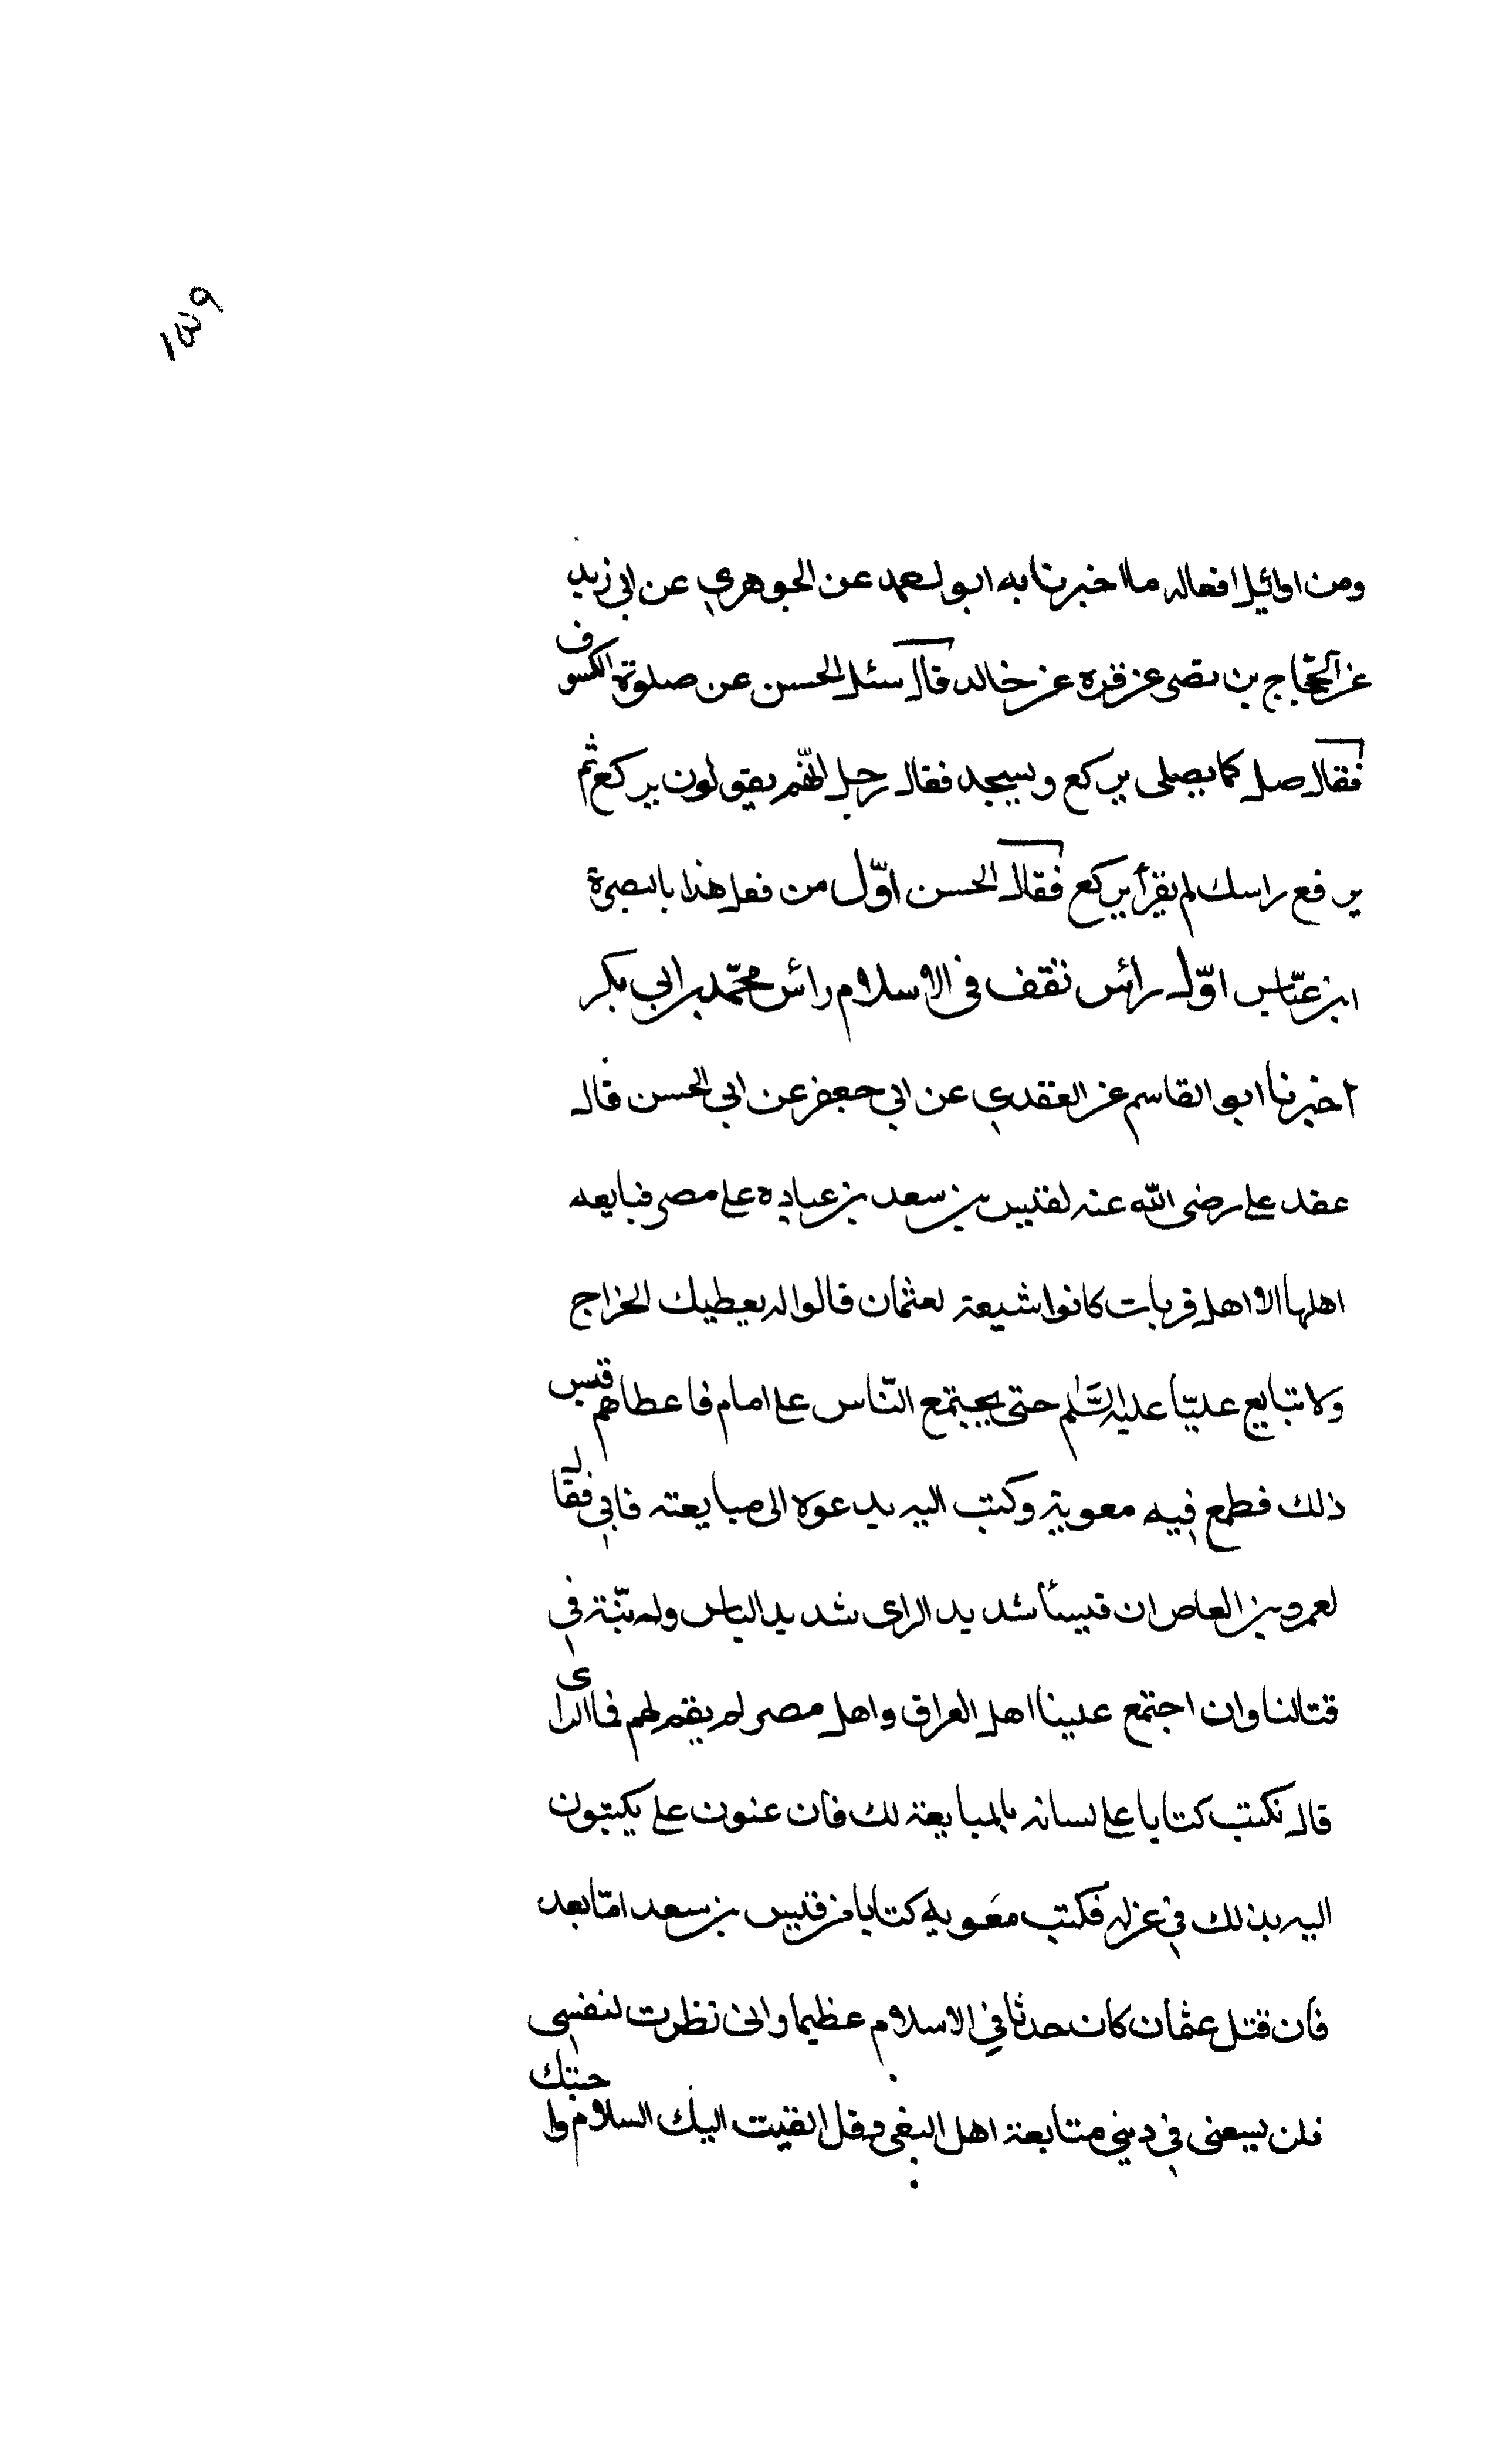 ١٥٩
ومن اوائل افعاله ما اخبرنا به ابو احمد عن الجوهري عن ابي زيد
عن الحجاج بن نصر عن قره عن خالد قال سئل الحسن عن صلوة الكسوف
فقال صل كما يصلى يركع ويسجد فقال رجل انهم يقولون يركع ثم
يرفع راسك لم يقرأ يركع فقال الحسن اوّل من فعل هذا بالبصرة
ابن عبّاس اوّل رأس نقف فى الاسلام رأس محمّد بن ابي بكر
اخبرنا ابو القاسم عن العقدي عن ابي جعفر عن ابي الحسن قال
عقد على رضى الله عنه لقيس بن سعد بن عباده على مصر فبايعه
اهلها الا اهل قريات كانوا شيعة لعثمان قالوا له يعطيك الخراج
ولا نبايع عليّا عليه السّلم حتى يجتمع النّاس على امام فاعطاهم قيس
ذلك فطمع فيه معوية وكتب اليه يدعوه الى مبايعته فابي فقال
لعمرو بن العاص ان قيسًا شديد الراى شديد الباس وله نيّة في
قتالنا وان اجتمع علينا اهل العراق واهل مصر لم يقم لهم فما الراى
قال نكتب كتابا على لسانه بالمبايعة لك فان عنون على يكتبون
اليه بذلك في عزله فكتب معوية كتابا من قيس بن سعد امّا بعد
فان قتل عثمان كان حدثا في الاسلام عظيما وانى نظرت لنفسى
فلن يسعنى في ديني متابعة اهل البغى وقد القيت اليك السلام واجبتك